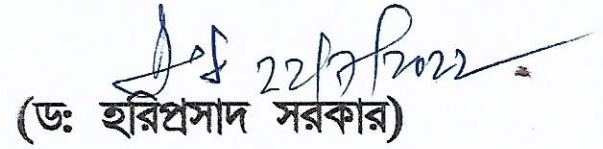 22/7/2022
(ডঃ হরিপ্রসাদ সরকার)